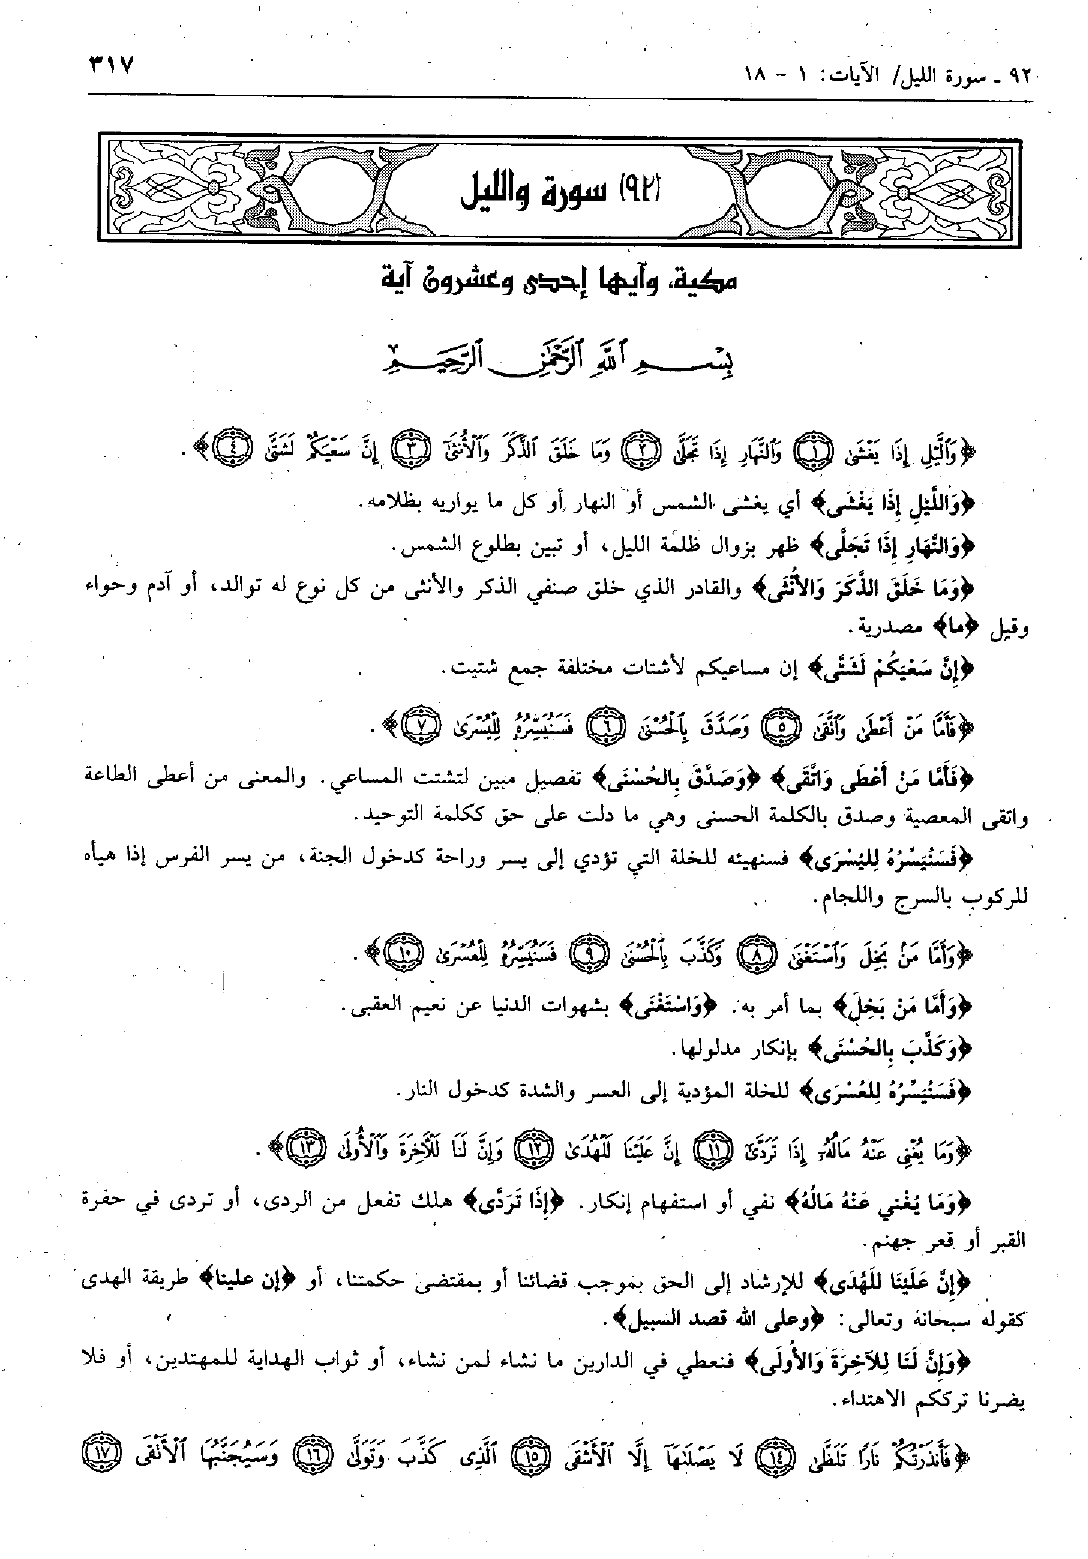 ٩٢ ـ سورة الليل/ الآيات: ١ - ١٨
٣١٧
(٩٢) سورة والليل
مكية، وآيها إحدى وعشرون آية
بِسْمِ ٱللَّهِ ٱلرَّحْمَٰنِ ٱلرَّحِيمِ
﴿وَٱلَّيْلِ إِذَا يَغْشَىٰ ١ وَٱلنَّهَارِ إِذَا تَجَلَّىٰ ٢ وَمَا خَلَقَ ٱلذَّكَرَ وَٱلْأُنثَىٰٓ ٣ إِنَّ سَعْيَكُمْ لَشَتَّىٰ ٤﴾.
﴿وَاللَّيْلِ إِذَا يَغْشَى﴾ أي يغشى الشمس أو النهار أو كل ما يواريه بظلامه.
﴿وَالنَّهَارِ إِذَا تَجَلَّى﴾ ظهر بزوال ظلمة الليل، أو تبين بطلوع الشمس.
﴿وَمَا خَلَقَ الذَّكَرَ وَالأُنْثَى﴾ والقادر الذي خلق صنفي الذكر والأنثى من كل نوع له توالد، أو آدم وحواء
وقيل ﴿ما﴾ مصدرية.
﴿إِنَّ سَعْيَكُمْ لَشَتَّى﴾ إن مساعيكم لأشتات مختلفة جمع شتيت.
﴿فَأَمَّا مَنْ أَعْطَىٰ وَٱتَّقَىٰ ٥ وَصَدَّقَ بِٱلْحُسْنَىٰ ٦ فَسَنُيَسِّرُهُۥ لِلْيُسْرَىٰ ٧﴾.
﴿فَأَمَّا مَنْ أَعْطَى وَاتَّقَى﴾ ﴿وَصَدَّقَ بِالحُسْنَى﴾ تفصيل مبين لتشتت المساعي. والمعنى من أعطى الطاعة
واتقى المعصية وصدق بالكلمة الحسنى وهي ما دلت على حق ككلمة التوحيد.
﴿فَسَنُيَسِّرُهُ لِليُسْرَى﴾ فسنهيئه للخلة التي تؤدي إلى يسر وراحة كدخول الجنة، من يسر الفرس إذا هيأه
للركوب بالسرج واللجام.
﴿وَأَمَّا مَنۢ بَخِلَ وَٱسْتَغْنَىٰ ٨ وَكَذَّبَ بِٱلْحُسْنَىٰ ٩ فَسَنُيَسِّرُهُۥ لِلْعُسْرَىٰ ١٠﴾.
﴿وَأَمَّا مَنْ بَخِلَ﴾ بما أمر به. ﴿وَاسْتَغْنَى﴾ بشهوات الدنيا عن نعيم العقبى.
﴿وَكَذَّبَ بِالحُسْنَى﴾ بإنكار مدلولها.
﴿فَسَنُيَسِّرُهُ لِلعُسْرَى﴾ للخلة المؤدية إلى العسر والشدة كدخول النار.
﴿وَمَا يُغْنِى عَنْهُ مَالُهُۥٓ إِذَا تَرَدَّىٰٓ ١١ إِنَّ عَلَيْنَا لَلْهُدَىٰ ١٢ وَإِنَّ لَنَا لَلْآخِرَةَ وَٱلْأُولَىٰ ١٣﴾.
﴿وَمَا يُغْنِي عَنْهُ مَالُهُ﴾ نفي أو استفهام إنكار. ﴿إِذَا تَرَدَّى﴾ هلك تفعل من الردى، أو تردى في حفرة
القبر أو قعر جهنم.
﴿إِنَّ عَلَيْنَا لَلهُدَى﴾ للإرشاد إلى الحق بموجب قضائنا أو بمقتضى حكمتنا، أو ﴿إن علينا﴾ طريقة الهدى
كقوله سبحانه وتعالى: ﴿وعلى الله قصد السبيل﴾.
﴿وَإِنَّ لَنَا لِلآخِرَةَ وَالأُولَى﴾ فنعطي في الدارين ما نشاء لمن نشاء، أو ثواب الهداية للمهتدين، أو فلا
يضرنا ترككم الاهتداء.
﴿فَأَنذَرْتُكُمْ نَارًا تَلَظَّىٰ ١٤ لَا يَصْلَىٰهَآ إِلَّا ٱلْأَشْقَى ١٥ ٱلَّذِى كَذَّبَ وَتَوَلَّىٰ ١٦ وَسَيُجَنَّبُهَا ٱلْأَتْقَى ١٧